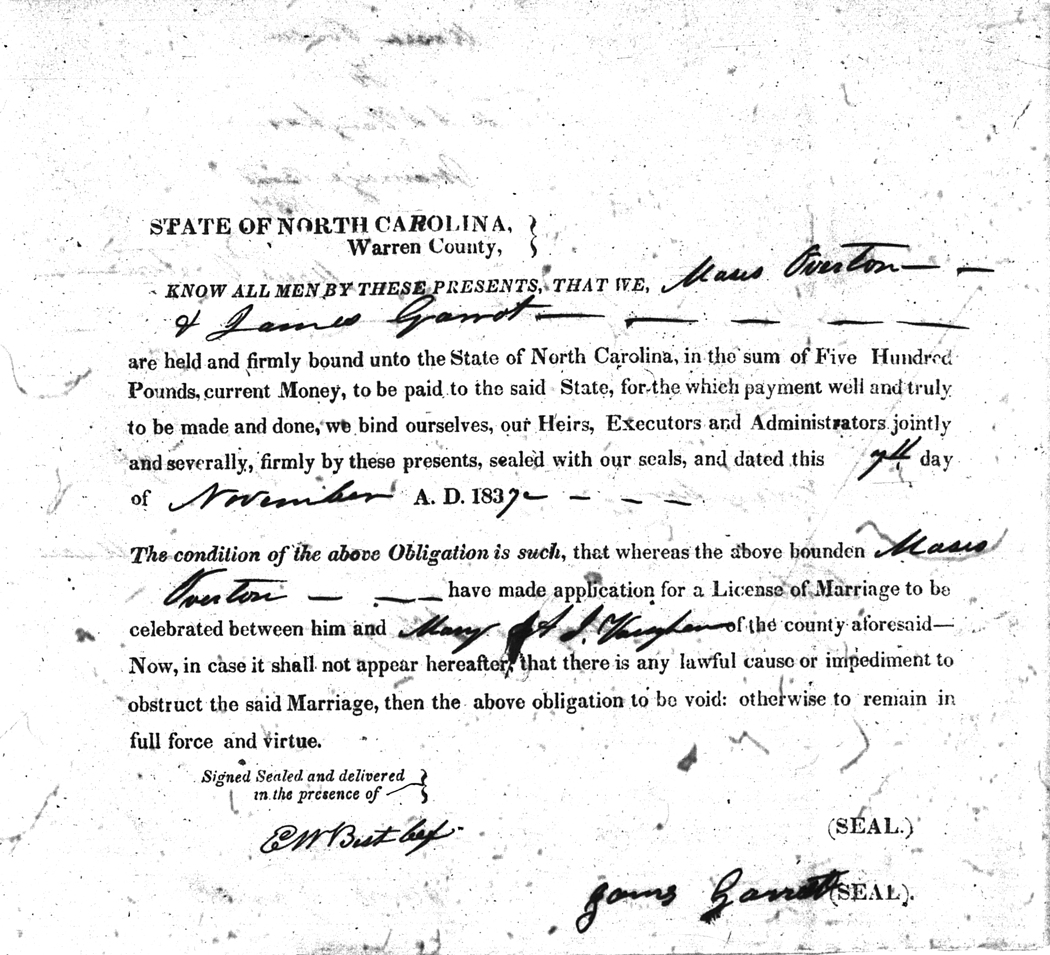 STATE OF NORTH CAROLINA,
Warren County,
KNOW ALL MEN BY THESE PRESENTS, THAT WE, Moses Overton
& James Garrot
are held and firmly bound unto the State of North Carolina, in the sum of Five Hundred
Pounds, current Money, to be paid to the said State, for the which payment well and truly
to be made and done, we bind ourselves, our Heirs, Executors and Administrators jointly
and severally, firmly by these presents, sealed with our seals, and dated this 7th day
of November A. D. 1837
The condition of the above Obligation is such, that whereas the above bounden Moses
Overton have made application for a License of Marriage to be
celebrated between him and Mary A J. Vaughan of the county aforesaid—
Now, in case it shall not appear hereafter, that there is any lawful cause or impediment to
obstruct the said Marriage, then the above obligation to be void: otherwise to remain in
full force and virtue.
Signed Sealed and delivered
in the presence of
E W Best
(SEAL.)
James Garrett (SEAL).